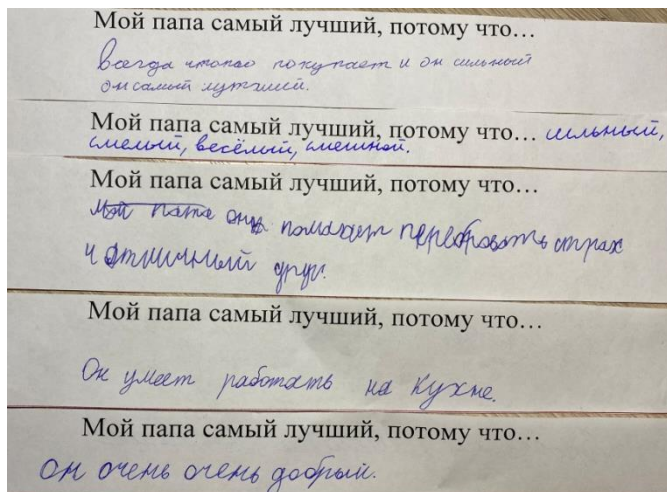 Мой папа самый лучший, потому что…
всегда чтото покупает и он сильный
он самый лутший.
Мой папа самый лучший, потому что… сильный,
смелый, весёлый, смешной.
Мой папа самый лучший, потому что…
Мой папа он помогает
страх
и отличный друг.
Мой папа самый лучший, потому что…
Он умеет работать на кухне.
Мой папа самый лучший, потому что…
он очень очень добрый.